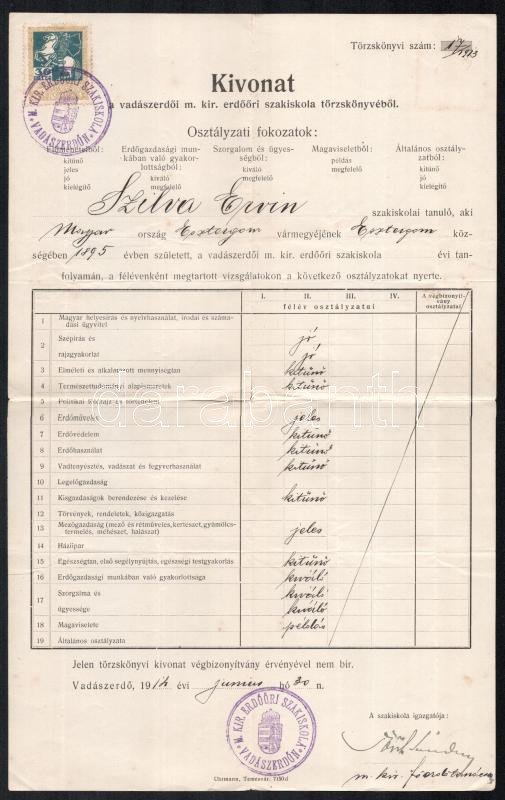 Törzskönyvi szám: 17/1913
30
M. KIR. ERDŐŐRI SZAKISKOLA VADÁSZERDŐN
Kivonat
a vadászerdői m. kir. erdőőri szakiskola törzskönyvéből.
Osztályzati fokozatok:
Előmenetelből: Erdőgazdasági mun- Szorgalom és ügyes- Magaviseletből: Általános osztály-
kitűnő kában való gyakor- ségből: példás zatból:
jeles lottságból: kiváló megfelelő kitűnő
jó kiváló megfelelő jó
kielégítő megfelelő kielégítő
Szilva Ervin szakiskolai tanuló, aki
Magyar ország Esztergom vármegyéjének Esztergom köz-
ségében 1895 évben született, a vadászerdői m. kir. erdőőri szakiskola évi tan-
folyamán, a félévenként megtartott vizsgálatokon a következő osztályzatokat nyerte.
I. II. III. IV. A végbizonyít-
félév osztályzatai vány osztályzatai
1 Magyar helyesírás és nyelvhasználat, irodai és száma-
dási ügyvitel
2 Szépírás és jó
rajzgyakorlat jó
3 Elméleti és alkalmazott mennyiségtan kitűnő
4 Természettudományi alapismeretek kitűnő
5 Politikai földrajz és történelem
6 Erdőművelés jeles
7 Erdővédelem kitűnő
8 Erdőhasználat kitűnő
9 Vadtenyésztés, vadászat és fegyverhasználat kitűnő
10 Legelőgazdaság
11 Kisgazdaságok berendezése és kezelése kitűnő
12 Törvények, rendeletek, közigazgatás
13 Mezőgazdaság (mező és rétművelés, kertészet, gyümölcs-
termelés, méhészet, halászat) jeles
14 Háziipar
15 Egészségtan, első segélynyújtás, egészségi testgyakorlás kitűnő
16 Erdőgazdasági munkában való gyakorlottsága kiváló
17 Szorgalma és kiváló
ügyessége kiváló
18 Magaviselete példás
19 Általános osztályzata
darabanth
Jelen törzskönyvi kivonat végbizonyítvány érvényével nem bir.
Vadászerdő, 1914 évi junius hó 30 n.
M. KIR. ERDŐŐRI SZAKISKOLA VADÁSZERDŐN
A szakiskola igazgatója:
m. kir.
Uhrmann, Temesvár. 7150 d